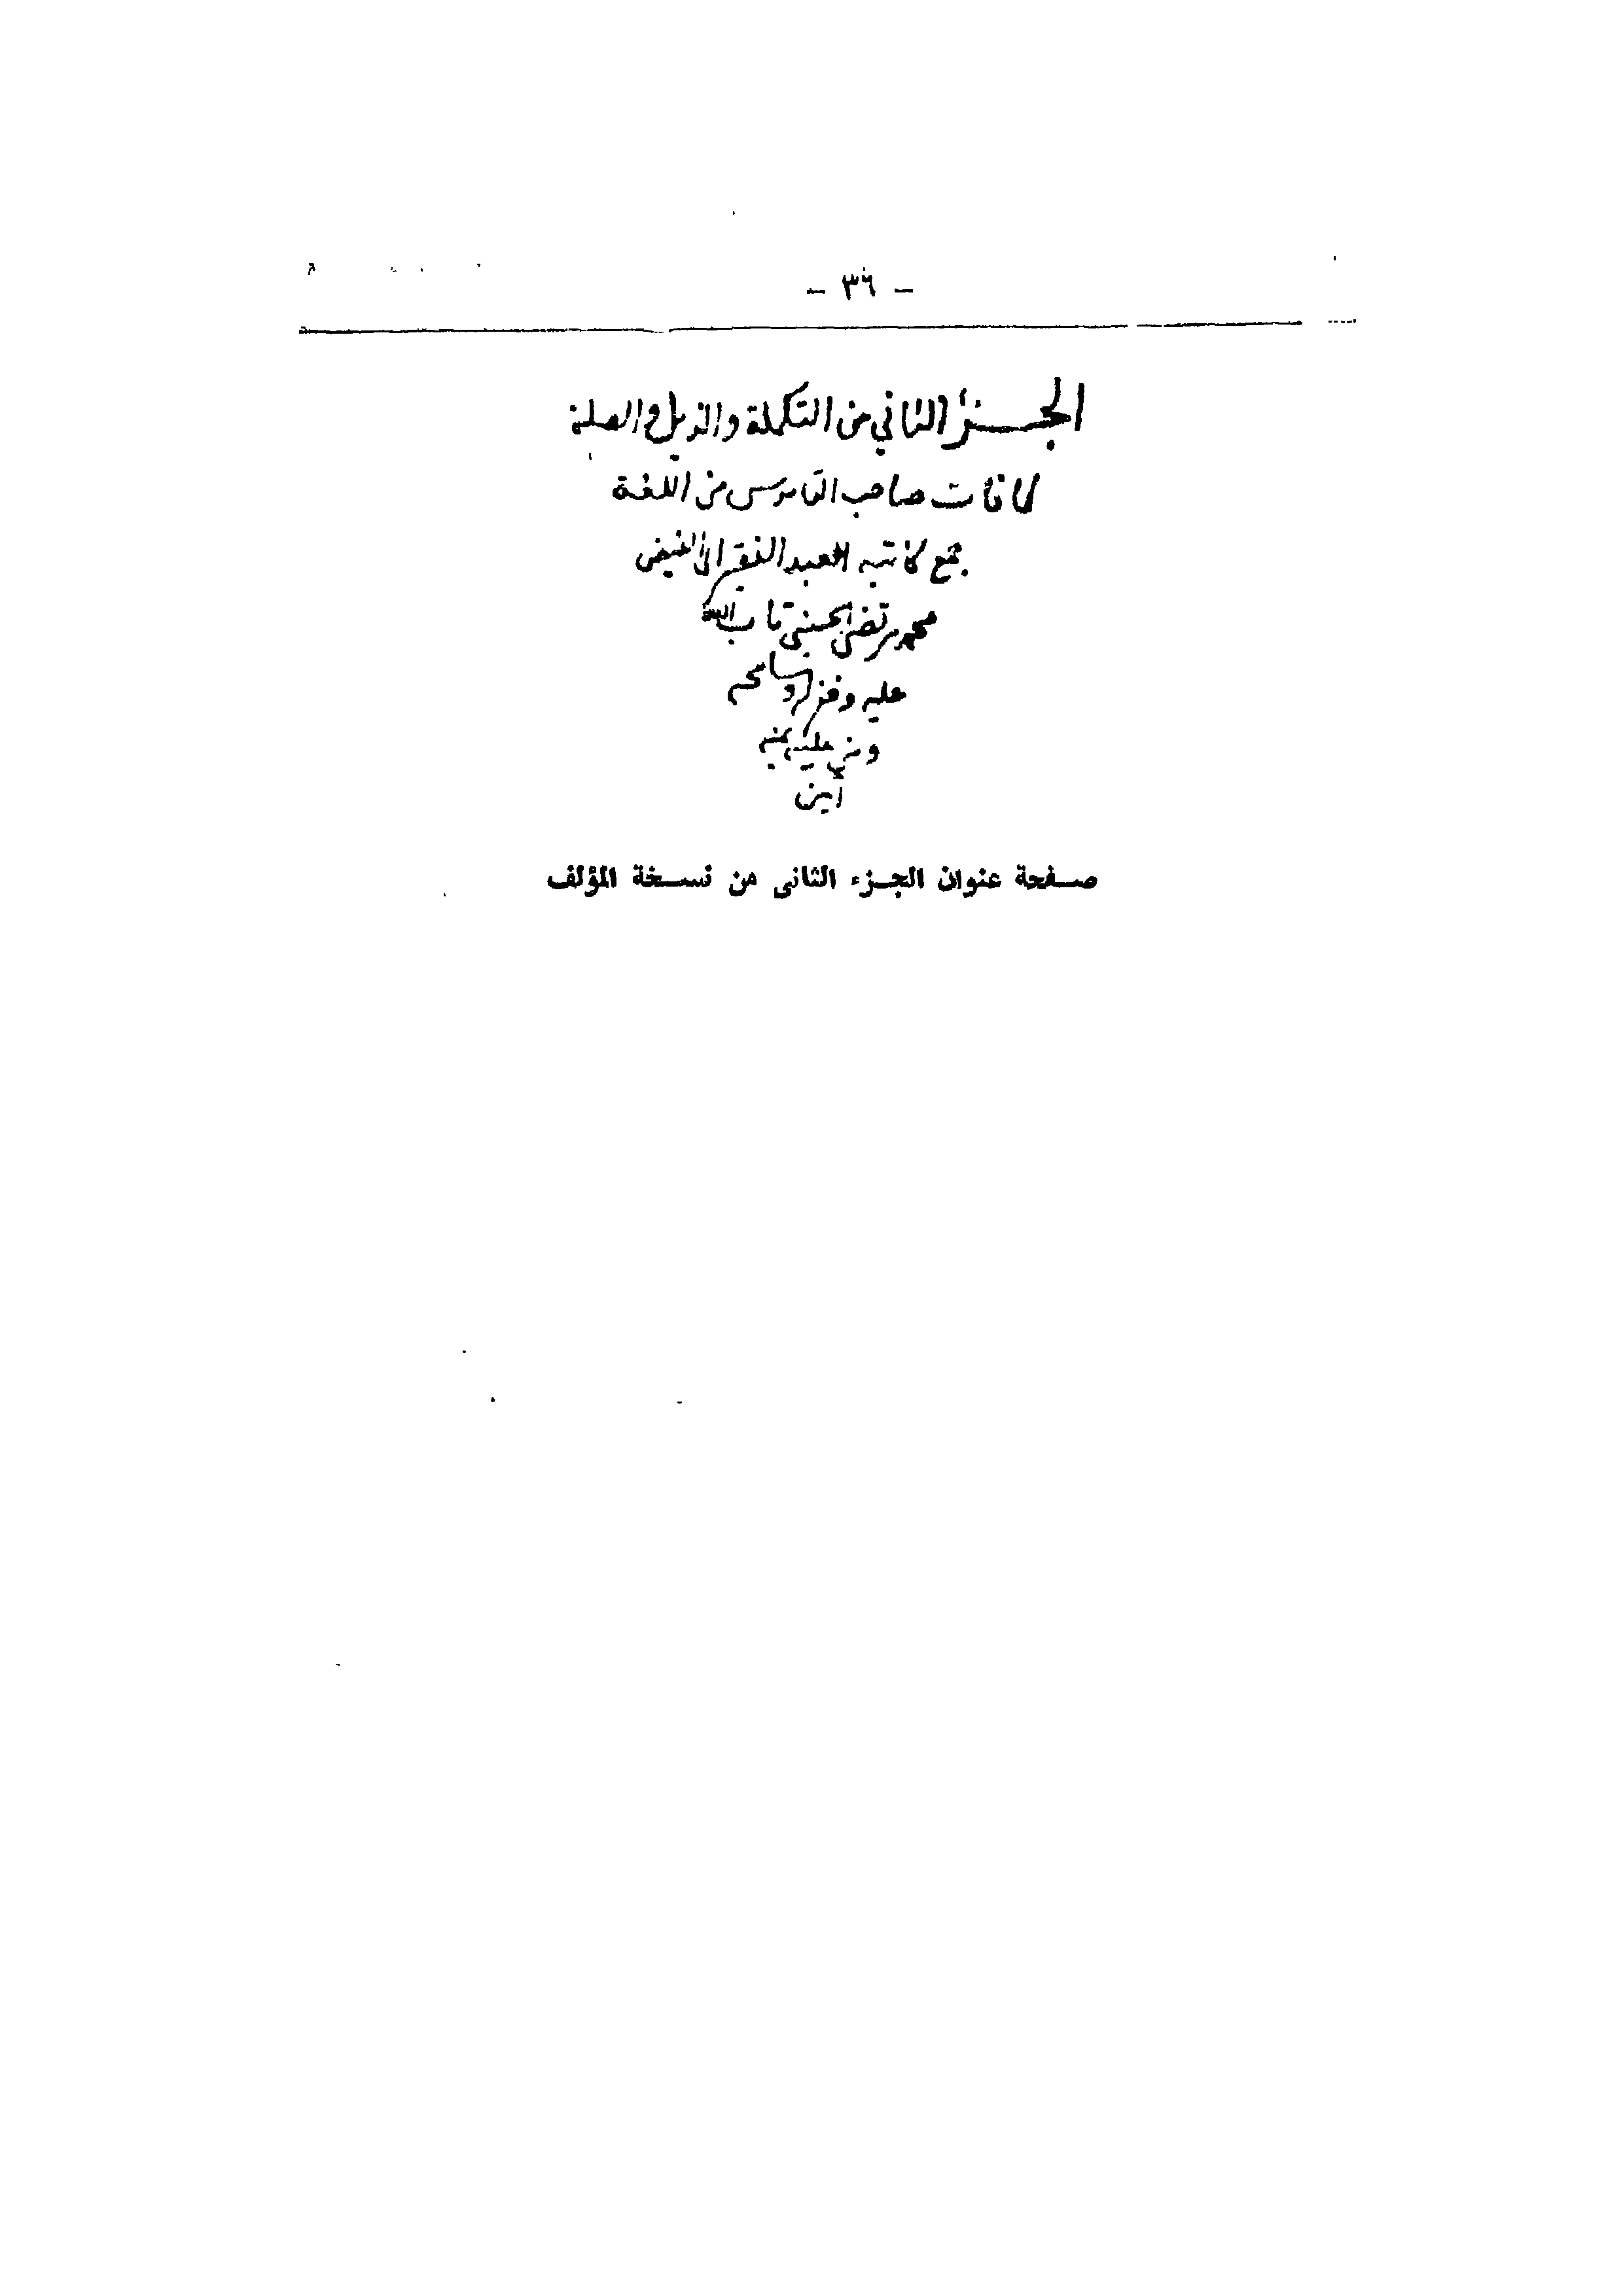 - ٣٦ -
الجزء الثاني من التكملة والذيل والصلة
لما فات صاحب القاموس من اللغة
جمع كاتبه العبد الفقير الى
محمد مرتضى الحسيني تاب الله
عليه وغفر له وسامحه
ومن عليه بمنه
آمين
صفحة عنوان الجزء الثاني من نسخة المؤلف